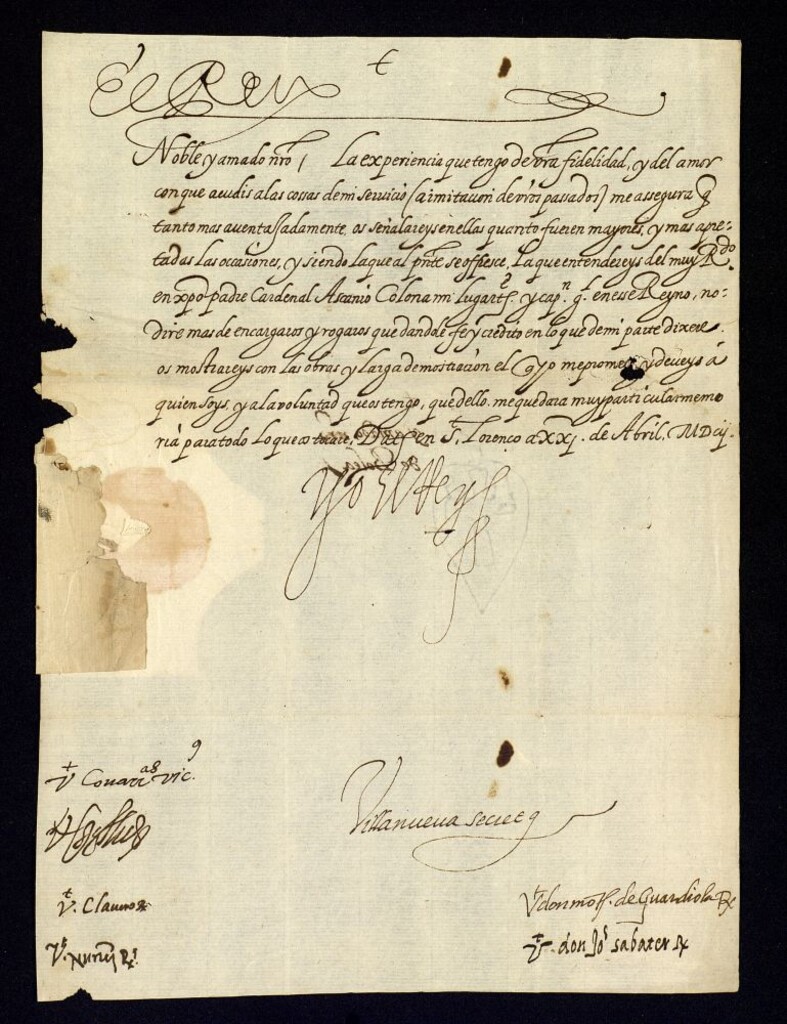 t
El Rey
Noble y amado nrõ / La experiencia que tengo de vrã fidelidad, y del amor
con que acudis a las cossas de mi seruicio (a imitacion de vrõs passados) me assegura q̃
tanto mas auentajadamente os señalareys en ellas quanto fueren mayores, y mas apre-
tadas las occasiones, y siendo la que al pñte se offresce, la que entendereys del muy Rdo
en xp̃o padre Cardenal Ascanio Colona mi lugarte. y capn. gl. en esse Reyno, no
dire mas de encargaros y rogaros que dandole fe y credito en lo que de mi parte dixere
os mostrareys con las obras y larga demostracion el q yo me prometo, y deueys á
quien soys, y a la voluntad que os tengo, que dello me quedara muy particular memo
ria para todo lo que os tocare, Datt. en St. Lorenço a XXj. de Abril. MDCij.
Yo El Rey
Vt Couarras. Vic.
Villanueua secret
Vt. Clauero
Vt don mo de Guardiola R
Vt. Nuñez R.
Vt. don Jo sabater R